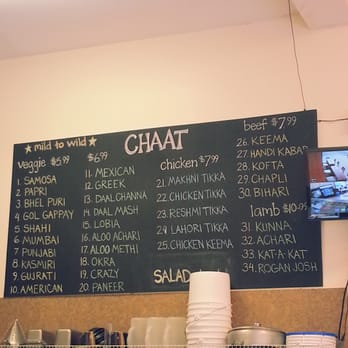 ★ mild to wild ★
CHAAT
veggie $5.99
1. SAMOSA
2. PAPRI
3. BHEL PURI
4. GOL GAPPAY
5. SHAHI
6. MUMBAI
7. PUNJABI
8. KASMIRI
9. GUJRATI
10. AMERICAN
$6.99
11. MEXICAN
12. GREEK
13. DAAL CHANNA
14. DAAL MASH
15. LOBIA
16. ALOO ACHARI
17. ALOO METHI
18. OKRA
19. CRAZY
20. PANEER
chicken $7.99
21. MAKHNI TIKKA
22. CHICKEN TIKKA
23. RESHMI TIKKA
24. LAHORI TIKKA
25. CHICKEN KEEMA
SALAD
beef $7.99
26. KEEMA
27. HANDI KABAB
28. KOFTA
29. CHAPLI
30. BIHARI
lamb $10.95
31. KUNNA
32. ACHARI
33. KAT-A-KAT
34. ROGAN JOSH